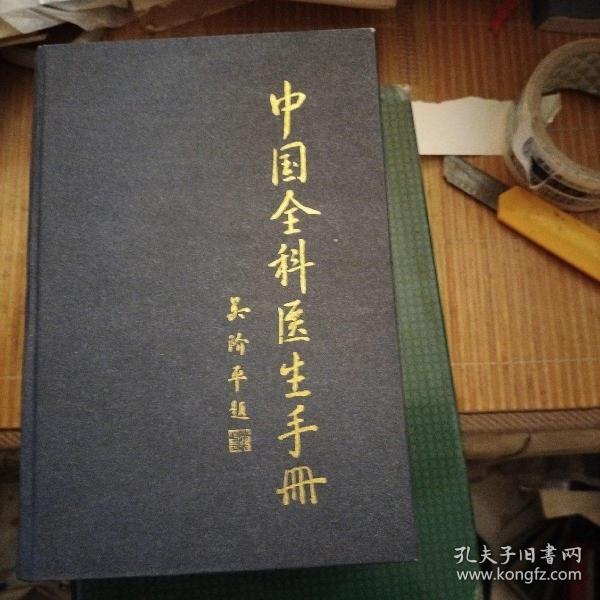 中国全科医生手册
吴阶平题
孔夫子旧書网
www.kongfz.com